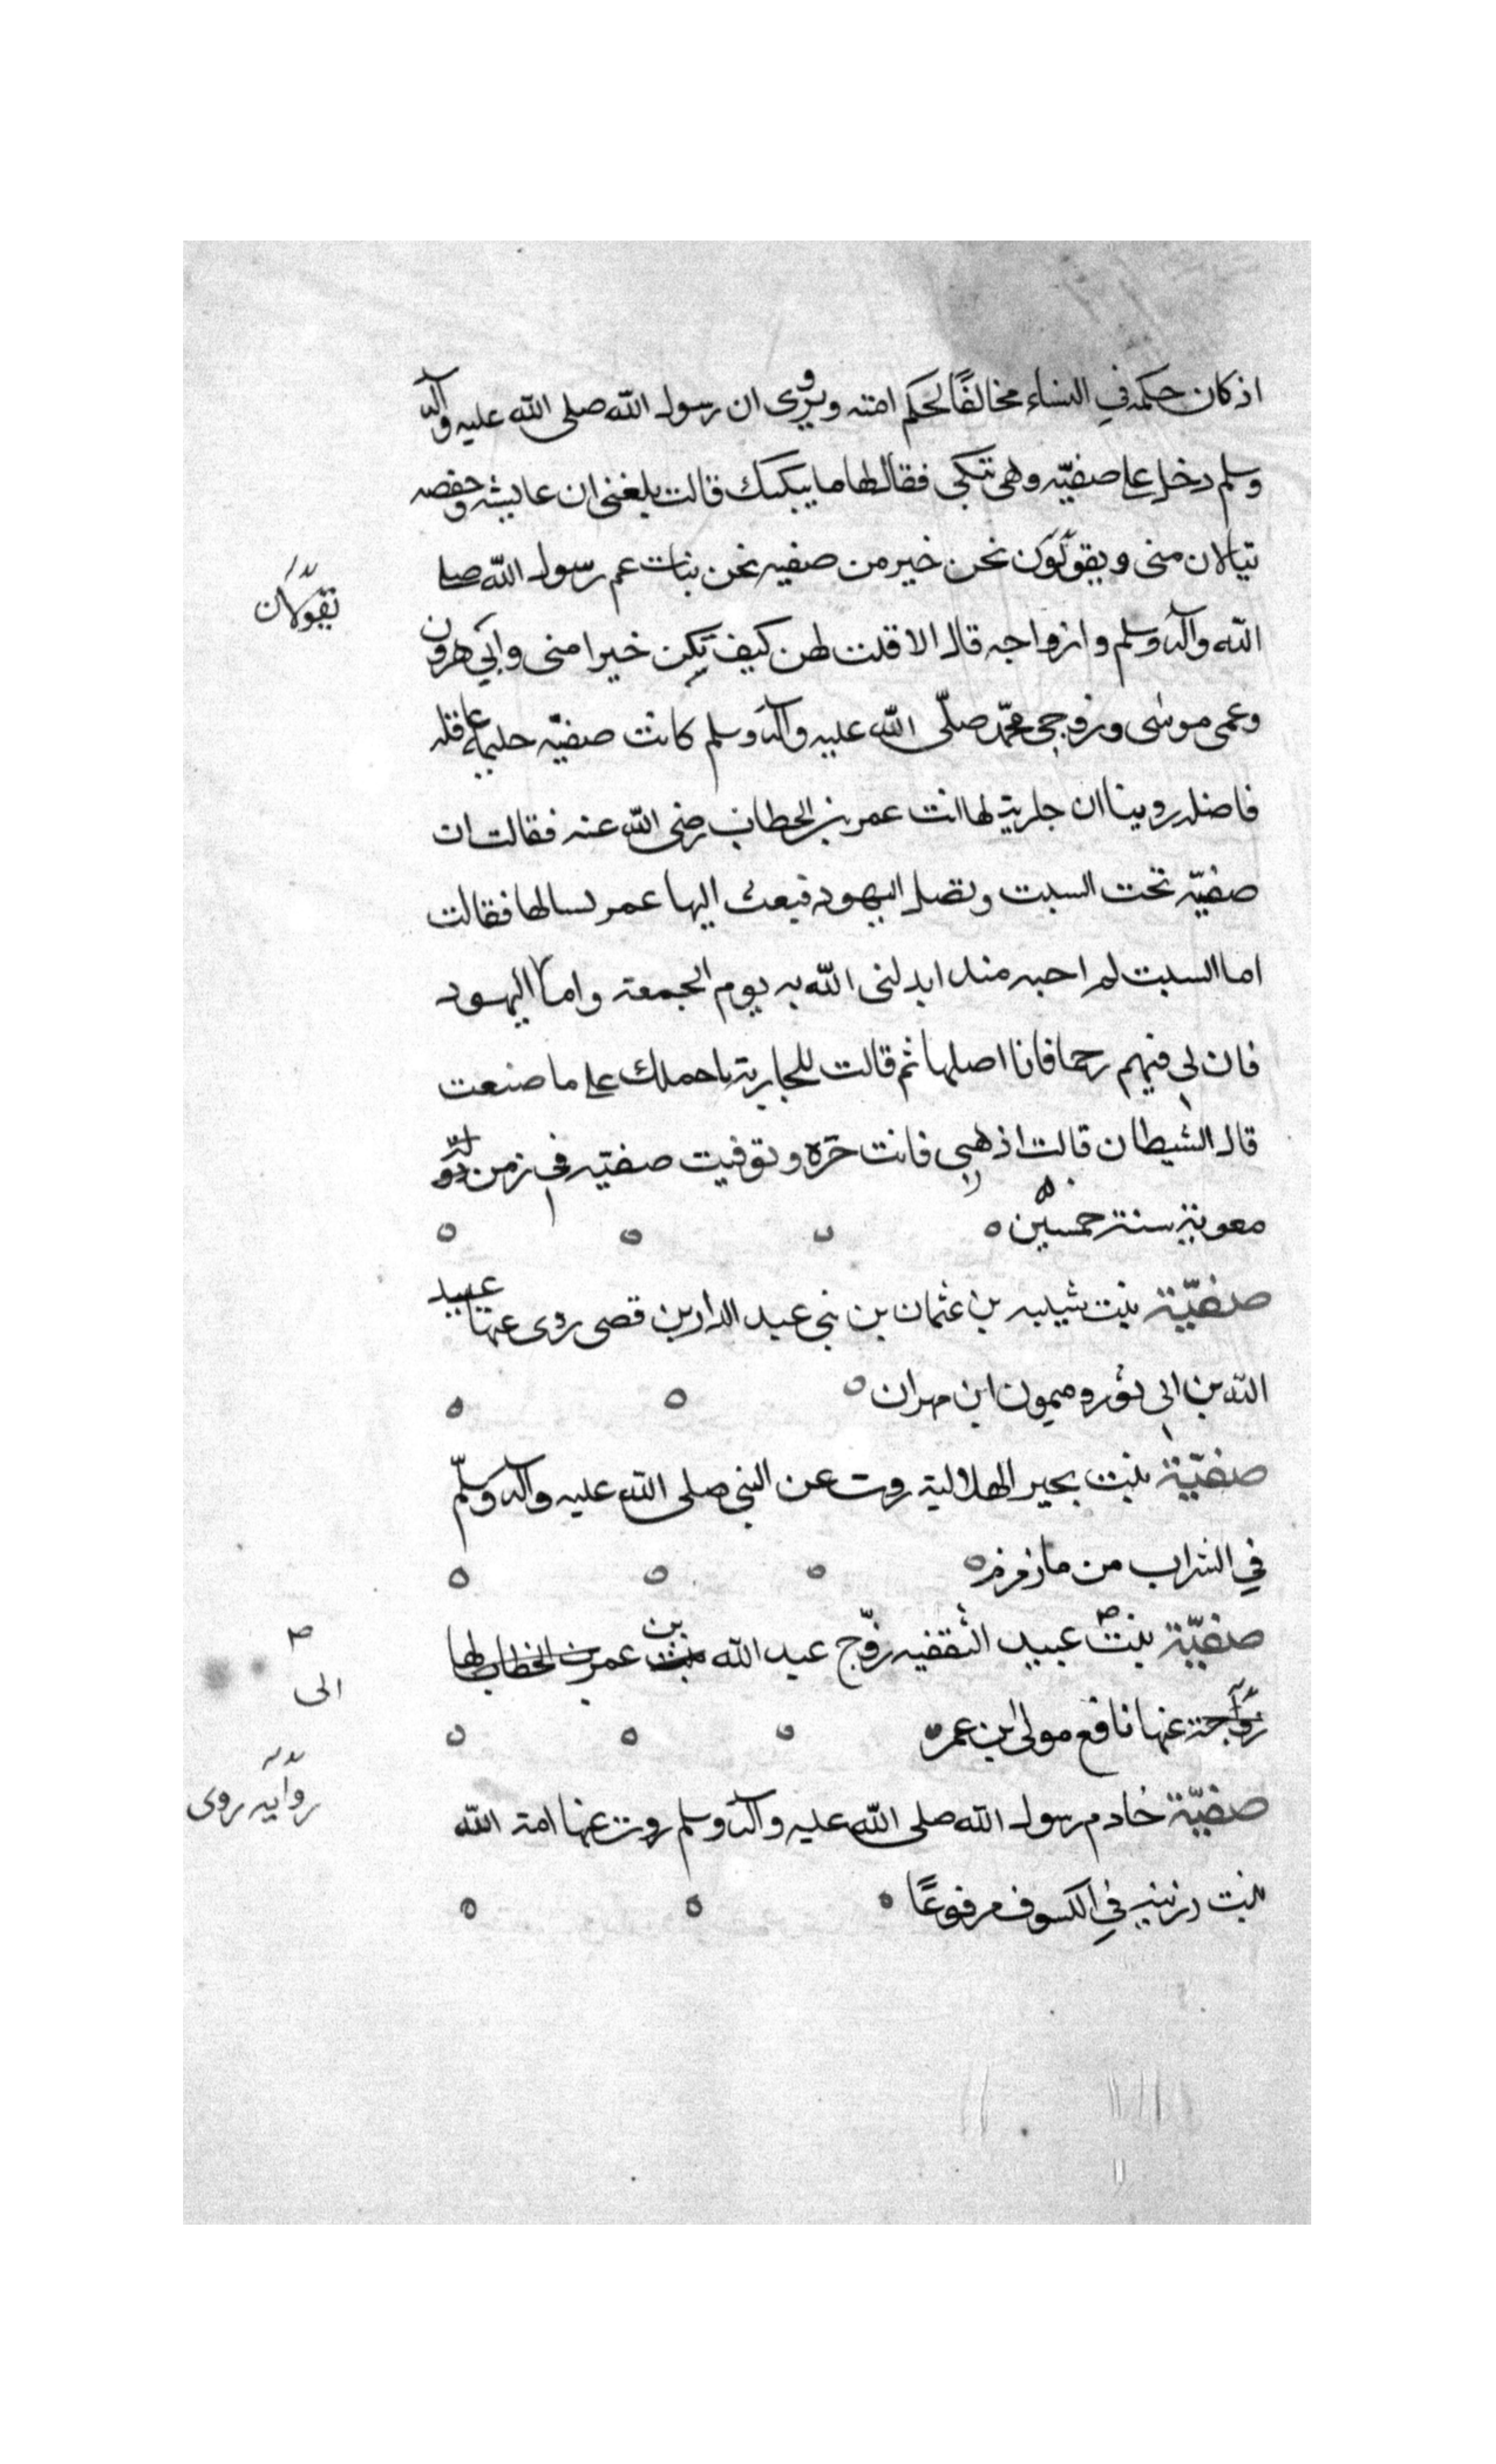 اذ كان حكمه في النساء مخالفًا لحكم امته ويروى ان رسول الله صلى الله عليه وآله
وسلم دخل على صفيّه وهى تبكى فقال لها ما يبكيك قالت بلغنى ان عايشه وحفصه
تنالان منى ويقولون نحن خير من صفيه نحن بنات عم رسول الله صلى
تقولان
الله وآله وسلم وازواجه قال الا قلت لهن كيف تكن خيرا منى وابي هرون
وعمى موسى وزوجى محمّد صلّى الله عليه وآله وسلم كانت صفيّه حليمه عاقله
فاضله روينا ان جارية لها اتت عمر بن الخطاب رضى الله عنه فقالت ان
صفيّه تحت السبت وتصل اليهود فبعث اليها عمر لسالها فقالت
اما السبت لم احبه منذ ابدلنى الله به يوم الجمعة واما اليهود
فان لى فيهم رحما فانا اصلها ثم قالت للجارية ما حملك على ما صنعت
قال الشيطان قالت اذهبى فانت حرّه وتوفيت صفيّه فى زمن
معوية سنة خمسين
صفيّة بنت شيبه بن عثمان بن بنى عبد الدار بن قصى روى عنها عبيد
الله بن ابى ثور وميمون ابن مهران
صفيّة بنت بحير الهلالية روت عن النبى صلى الله عليه وآله وسلّم
في الشراب من ماء زمزم
صفيّة بنت عبيد الثقفيه زوّج عبد الله بن عمر بن الخطاب لها
الى
عنها نافع مولى ابن عمر
روايه روى
صفيّة خادم رسول الله صلى الله عليه وآله وسلم روت عنها امة الله
بنت رزينه في الكسوف مرفوعًا